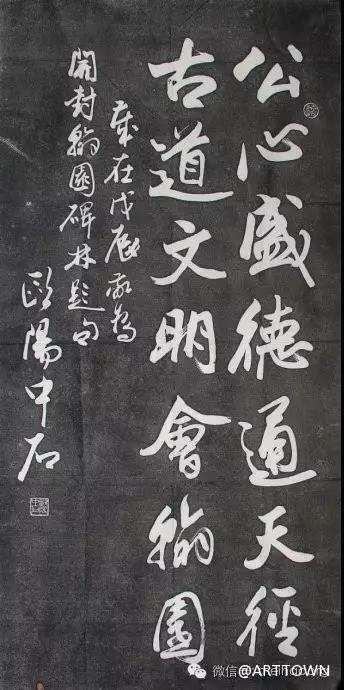 公心盛德通天徑
古道文明會翰園
歲在戊辰敬為
開封翰園碑林題句
歐陽中石
@ARTTOWN